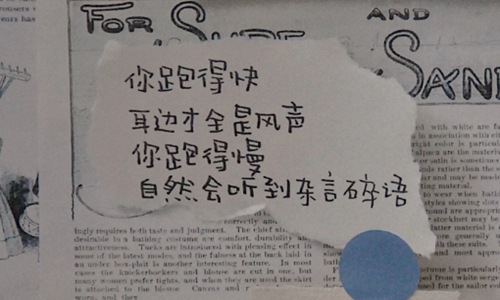 FOR SURF AND SAND
你跑得快
耳边才全是风声
你跑得慢
自然会听到杂言碎语
ed with white are fa
in association with eit
right color is particula
alpaca are the materia
or satin is sometimes
rials rather than the s
er and may be made
ting material.
to wear when bathi
styles showing dots
and are appropriat
stockinet may be
latter material is e
more generally w
with these suits.
correctly and
ingly requires both taste and judgment. The chief att
desirable in a bathing costume are comfort, durability and
attractiveness. Tucks are introduced with pleasing effect in
some of the latest modes, and the fulness at the back laid in
an under box-plait is another interesting feature. In most
cases the knickerbockers and blouse are cut in one, but
many women prefer tights, and when they are used the skirt
is attached to the blouse. Canvas and r
worn, and they